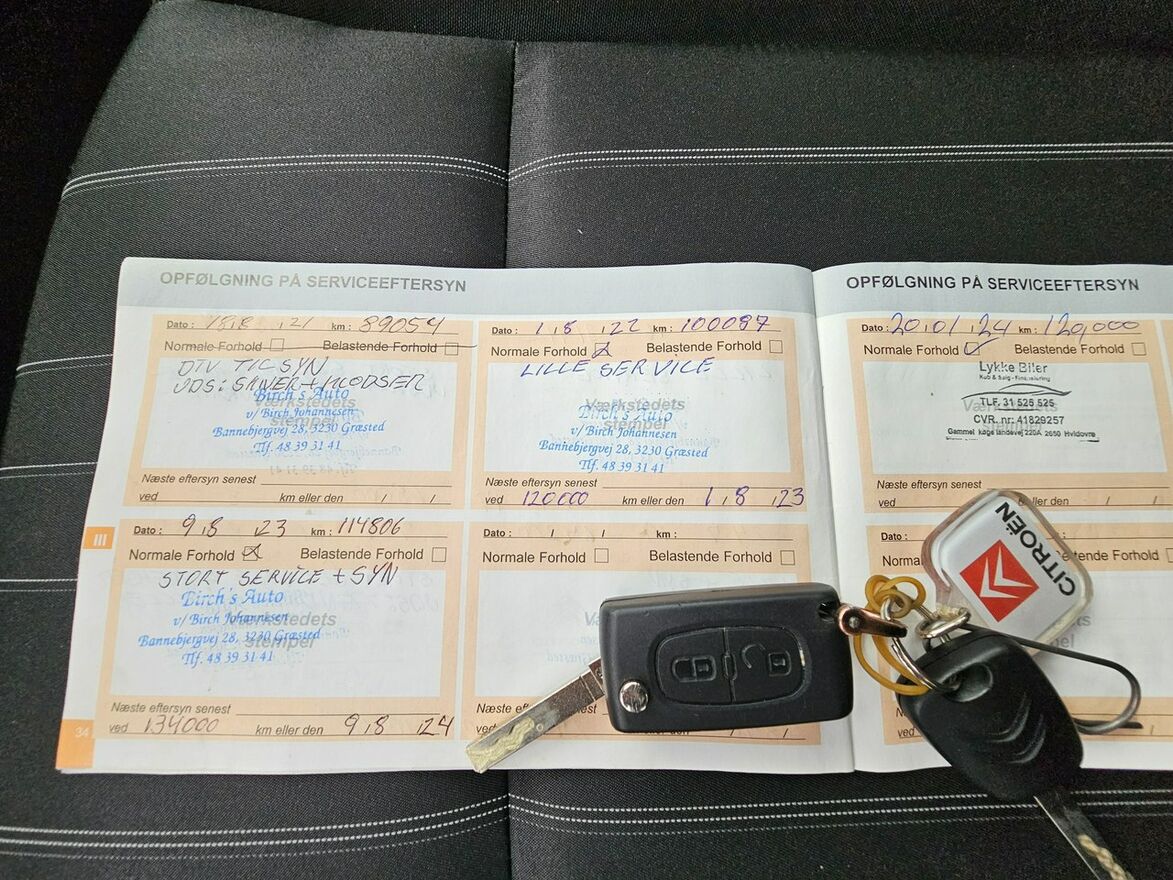 OPFØLGNING PÅ SERVICEEFTERSYN
Dato : 18,8 ,21 km : 89054
Normale Forhold Belastende Forhold
DTV TIL SYN
UDS: SKIVER + KLODSER
Værkstedets
stempel
Birch's Auto
v/ Birch Johannesen
Bannebjergvej 28, 3230 Græsted
Tlf. 48 39 31 41
Næste eftersyn senest
ved km eller den / /
Dato : 1,8 ,22 km : 100087
Normale Forhold Belastende Forhold
LILLE SERVICE
Værkstedets
stempel
Birch's Auto
v/ Birch Johannesen
Bannebjergvej 28, 3230 Græsted
Tlf. 48 39 31 41
Næste eftersyn senest
ved 120000 km eller den 1,8 ,23
III
Dato : 9,8 ,23 km : 114806
Normale Forhold Belastende Forhold
STORT SERVICE + SYN
Værkstedets
stempel
Birch's Auto
v/ Birch Johannesen
Bannebjergvej 28, 3230 Græsted
Tlf. 48 39 31 41
Næste eftersyn senest
ved 134000 km eller den 9,8 ,24
34
Dato : / / km :
Normale Forhold Belastende Forhold
Værkstedets
stempel
Næste
ved
OPFØLGNING PÅ SERVICEEFTERSYN
Dato : 20,01,24 km : 120,000
Normale Forhold Belastende Forhold
Lykke Biler
Køb & Salg - Finansiering
Værkstedets
TLF. 31 525 525
CVR. nr: 41829257
Gammel køge landevej 220A 2650 Hvidovre
Næste eftersyn senest
ved km eller den / /
Dato :
Normale Forhold
Næste
ved
CITROËN